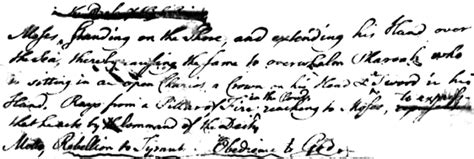 Moses, standing on the Shore, and extending his Hand over
the Sea, thereby causing the same to overwhelm Pharoah who
is sitting in an open Chariot, a Crown on his Head & a Sword in his
Hand. Rays from a Pillar of Fire in the Clouds reaching to Moses, to express
that he acts by Command of the Deity
Motto, Rebellion to Tyrants is Obedience to God.